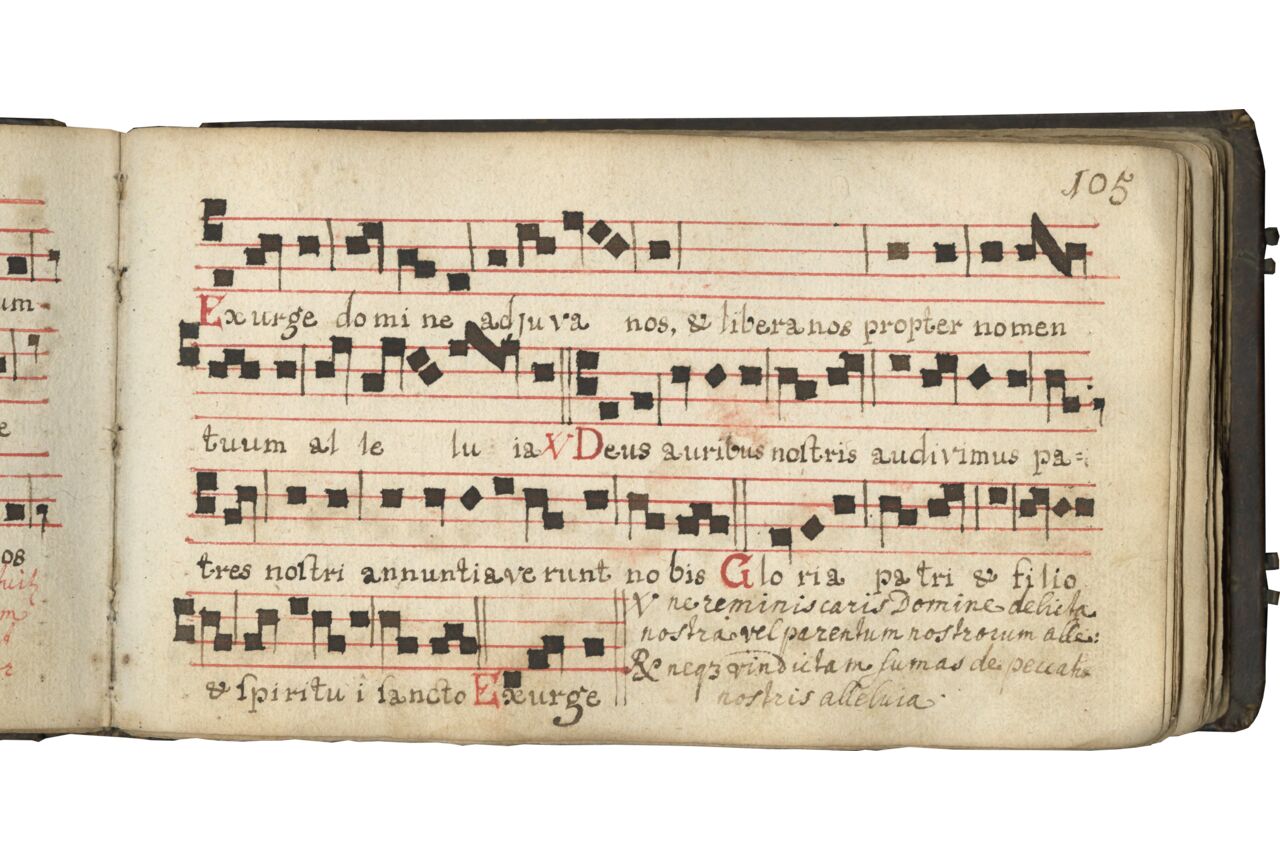 105
um-
Exurge domine adjuva nos, & liberanos propter nomen
e
tuum al le lu ia V Deus auribus nostris audivimus pa=
os
tres nostri annuntiaverunt nobis Gloria patri & filio
& spiritui sancto Exurge
V ne reminiscaris Domine delicta
nostra vel parentum nostrorum alle:
R neqз vindictam sumas de peccatis
nostris alleluia